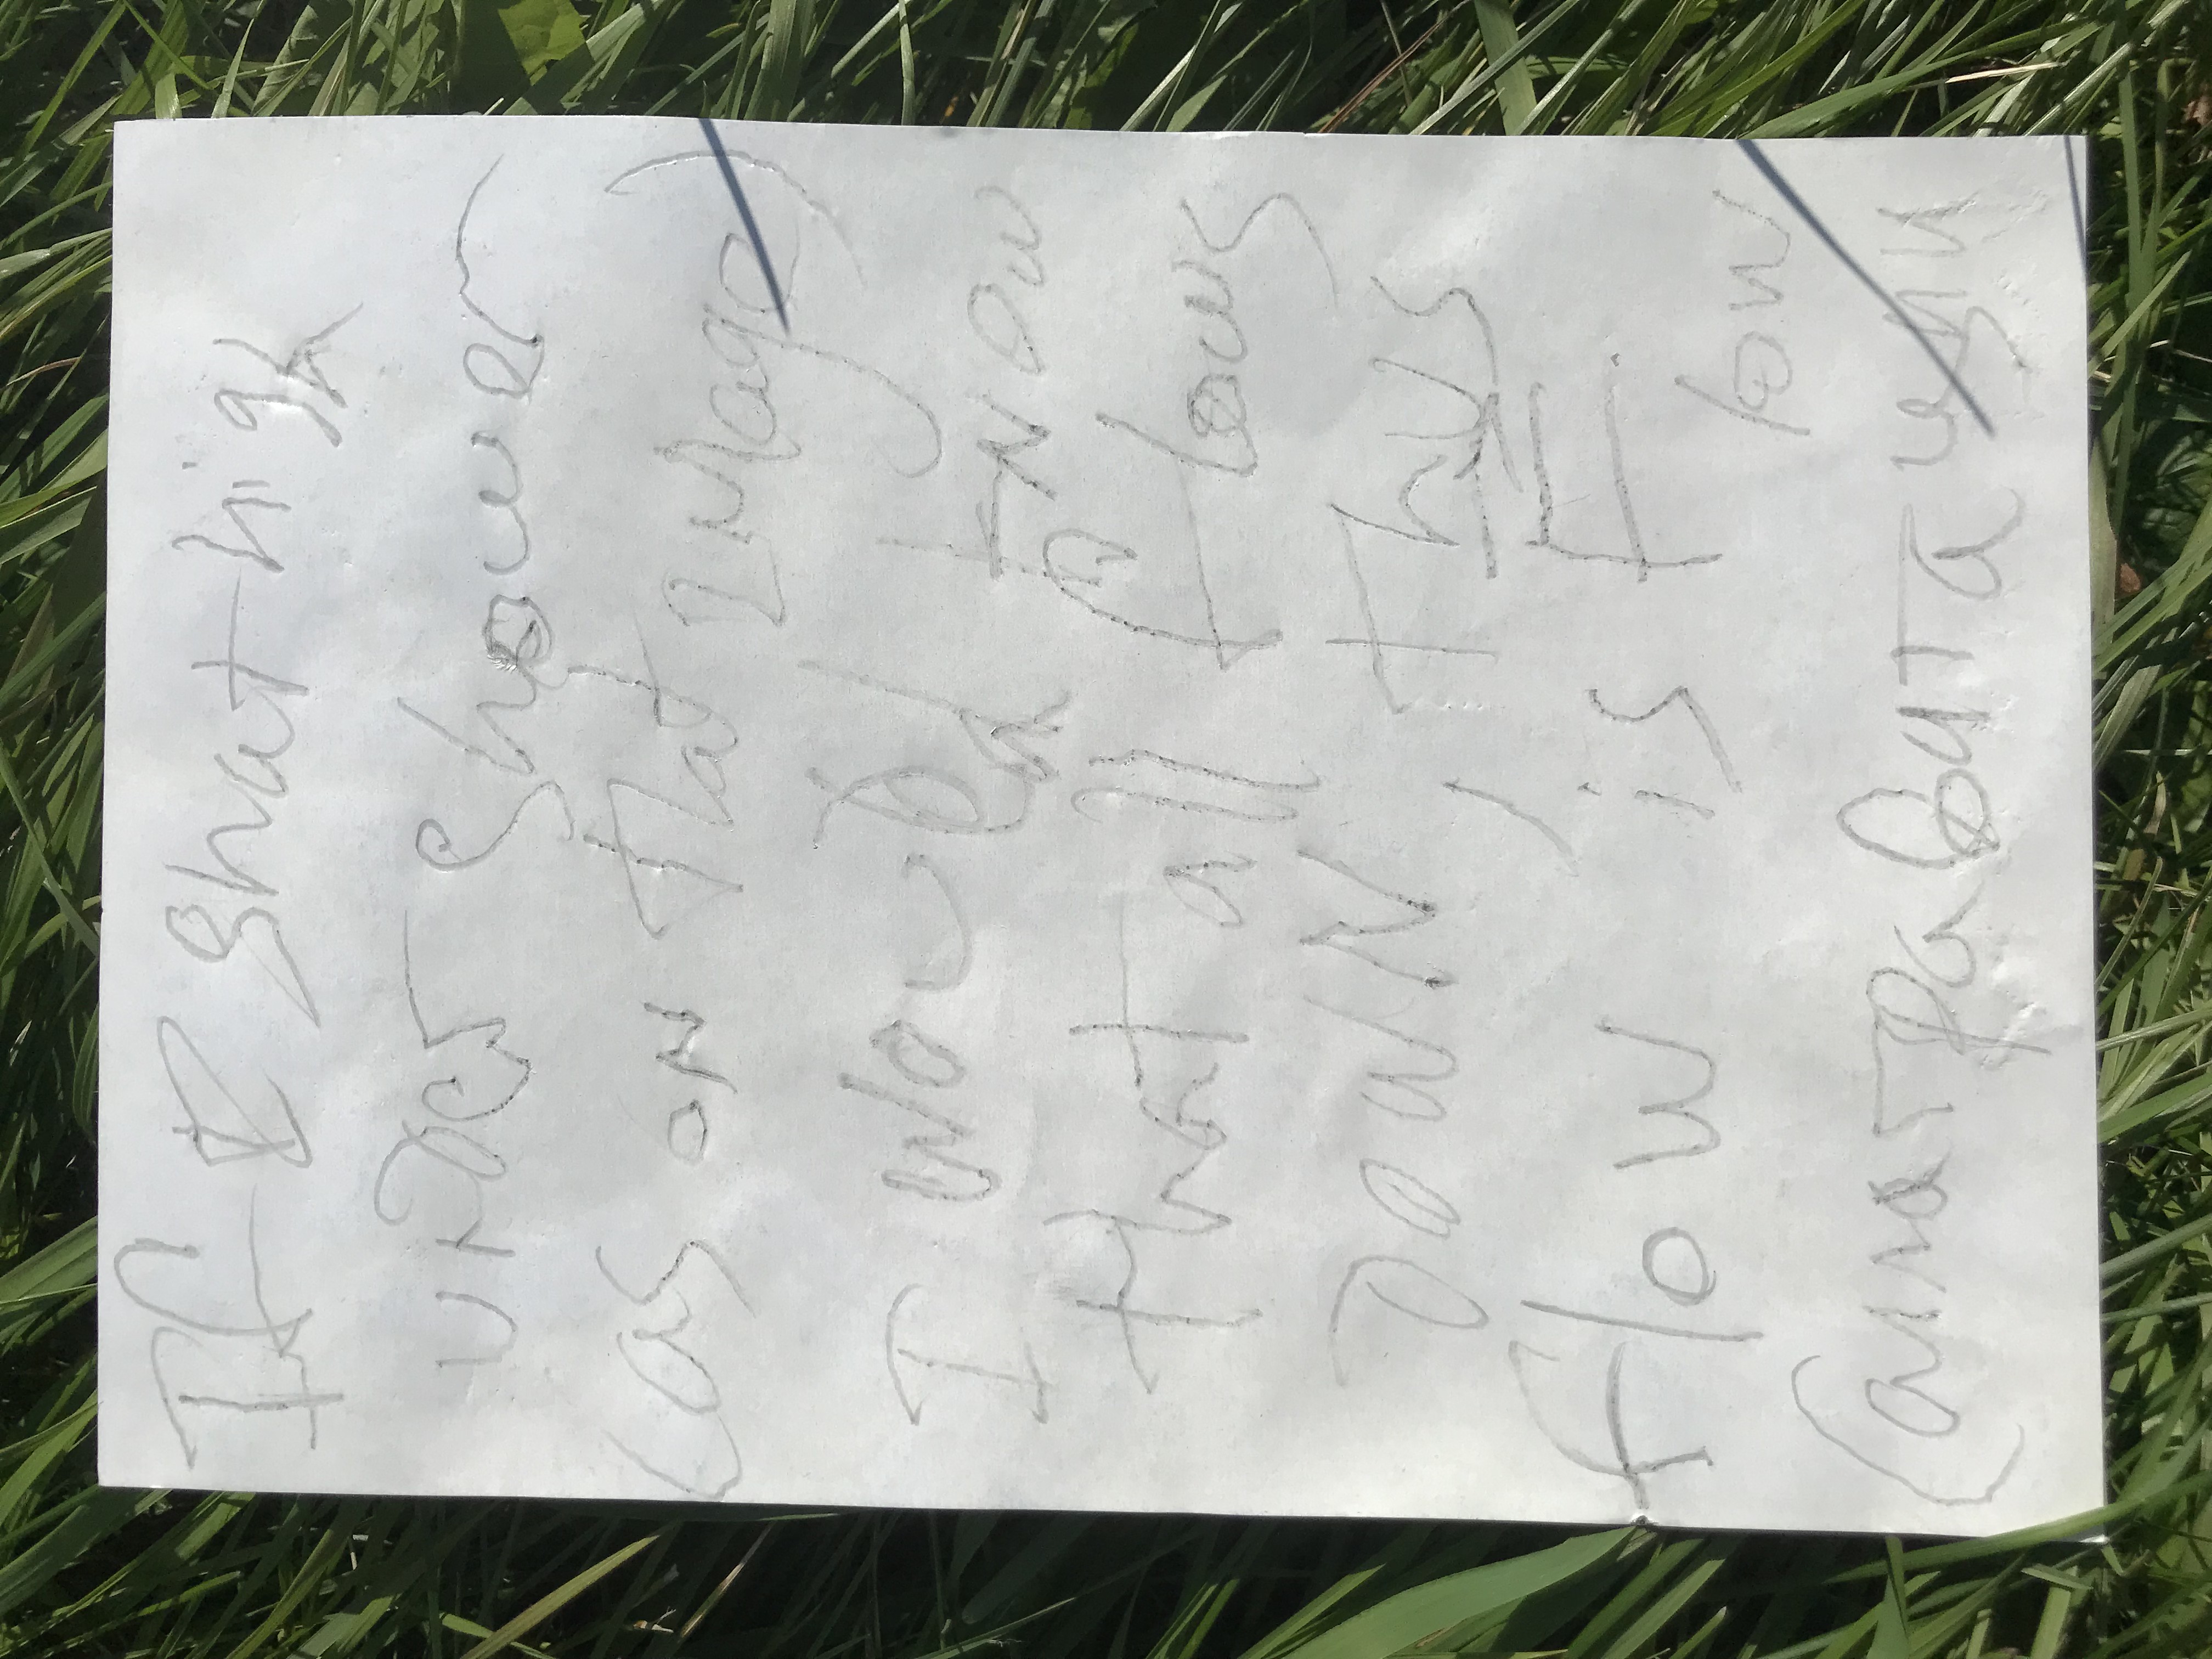 If I shat high
under shower
(as on that image)
I would know
that all flows
DOWN, thus
flow is F
low
(антигравитация